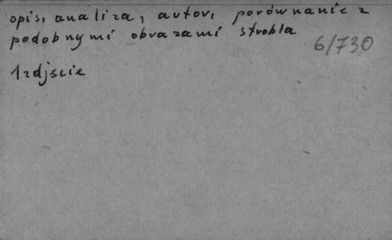 opis, analiza, autor, porównanie z
podobnymi obrazami Strobla
6/730
1 zdjęcie